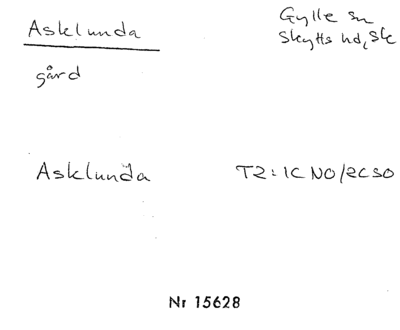 Asklunda
Gylle sn
Skytts hd, Sk
gård
Asklunda
T2:1C NO/2C SO
Nr 15628